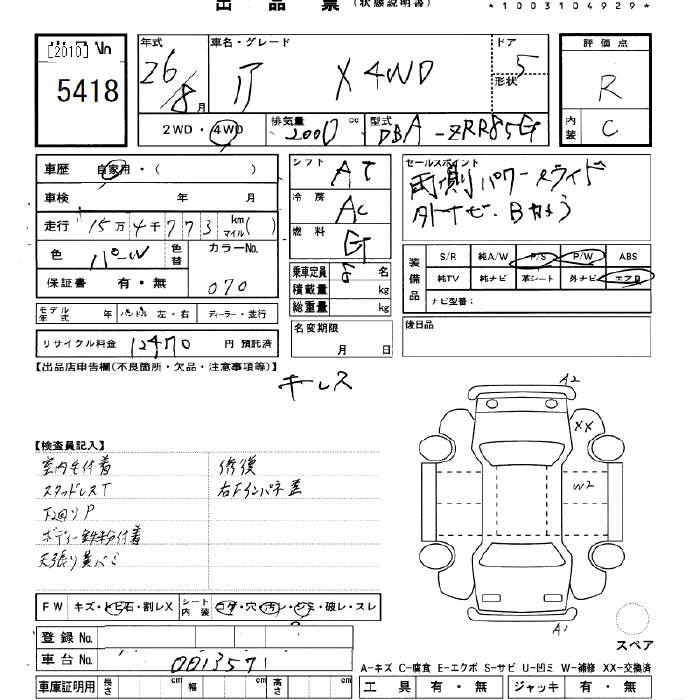 出 品 票 (状態説明書)
*1003104929*
[2010] No
5418
年式
26/8月
車名・グレード
X 4WD
ドア
5
形状
評価点
R
内装
C
2WD・4WD
排気量
2000 cc
型式
DBA-ZRR85G
車歴
自家用・( )
車検
年 月
走行
15万4千773 km マイル( )
色
パール
色替
カラーNo.
070
保証書
有・無
モデル年式
年
ハンドル 左・右
ディーラー・並行
リサイクル料金
12470 円 預託済
シフト
AT
冷房
AC
燃料
G
乗車定員
8 名
積載量
kg
総重量
kg
名変期限
月 日
セールスポイント
両側パワースライド
外ナビ.Bカメラ
装備品
S/R
純A/W
P/S
P/W
ABS
純TV
純ナビ
革シート
外ナビ
エアB
ナビ型番:
後日品
【出品店申告欄(不良箇所・欠品・注意事項等)】
キーレス
【検査員記入】
室内毛付着
スタッドレスT
下回りP
ボディー鉄粉付着
天張り黄バミ
修復
右Fインパネ歪
A2
XX
W2
A1
スペア
FW
キズ・トビ石・割レX
シート内装
コゲ・穴・汚レ・シミ・破レ・スレ
登録 No.
車台 No.
0013571
車庫証明用
長さ cm
幅 cm
高さ cm
A-キズ C-腐食 E-エクボ S-サビ U-凹ミ W-補修 XX-交換済
工具
有・無
ジャッキ
有・無